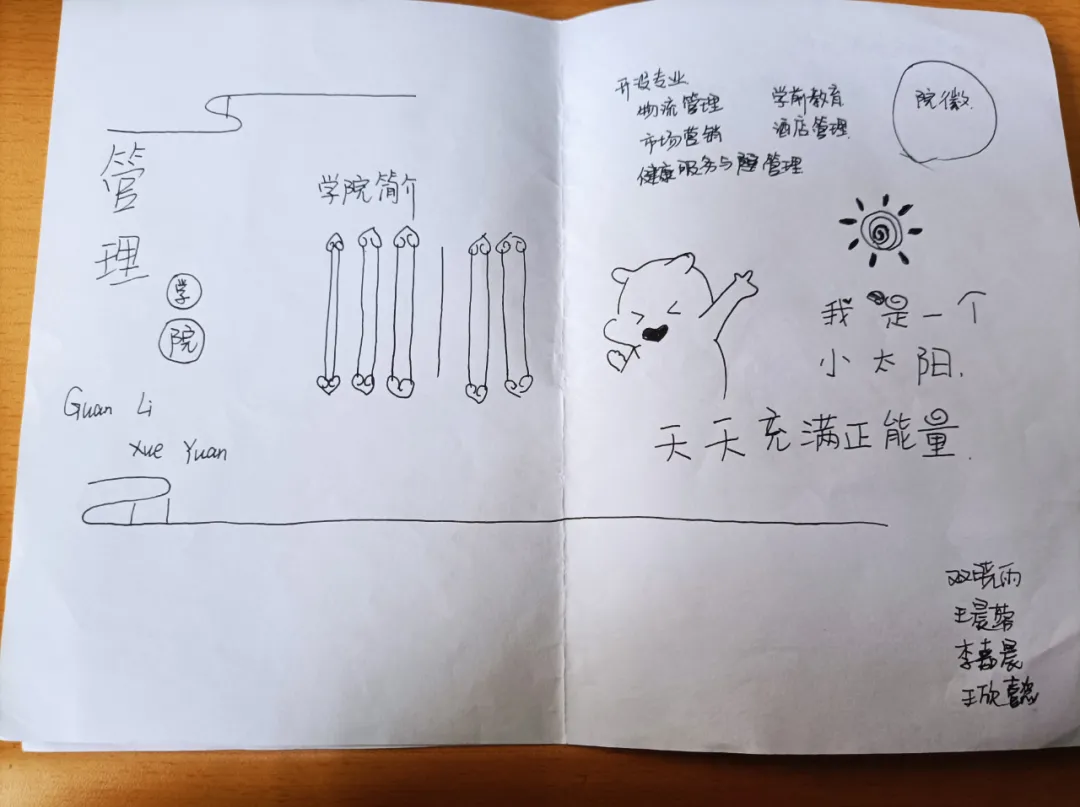 管
理
学
院
Guan Li
Xue Yuan
学院简介
开设专业
物流管理 学前教育
市场营销 酒店管理
健康服务与管理
院徽
我是一个
小太阳.
天天充满正能量.
双晓雨
李春晨